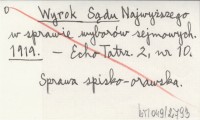 Wyrok Sądu Najwyższego
w sprawie wyborów sejmowych.
1919. — Echo Tatrz. 2, nr 10.
Sprawa spisko-orawska.